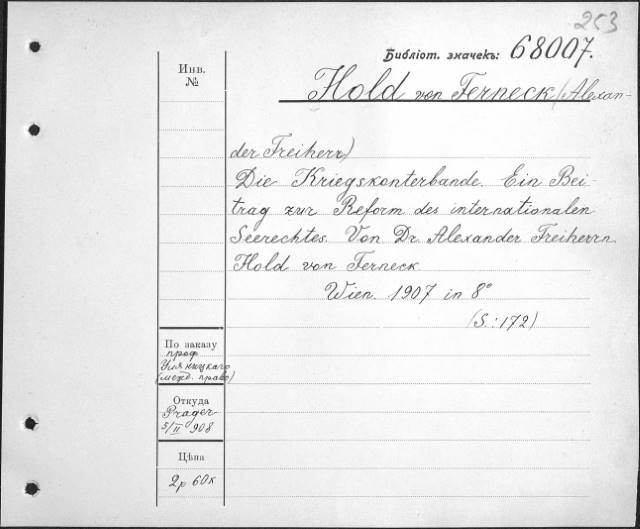 253
Библіот. значекъ: 68007.
Инв.
№
Hold von Ferneck (Alexan-
der Freiherr)
Die Kriegskonterbande. Ein Bei-
trag zur Reform des internationalen
Seerechtes. Von Dr. Alexander Freiherrn
Hold von Ferneck
Wien. 1907 in 8°
(S.: 172)
По заказу
проф
Уляницкаго
(межд. право)
Откуда
Prager
5/II 908
Цѣна
2р 60к